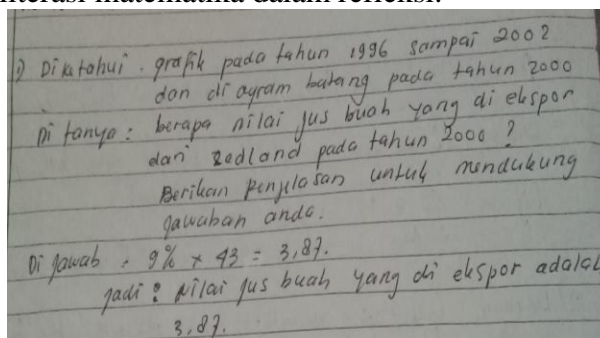 literasi matematika dalam refleksi.
1) Diketahui . grafik pada tahun 1996 sampai 2002
dan di agram batang pada tahun 2000
Di tanya : berapa nilai jus buah yang di ekspor
dari zedland pada tahun 2000 ?
Berikan penjelasan untuk mendukung
jawaban anda.
Di jawab : 9% x 43 = 3,87.
jadi : Nilai jus buah yang di ekspor adalal
3,87.